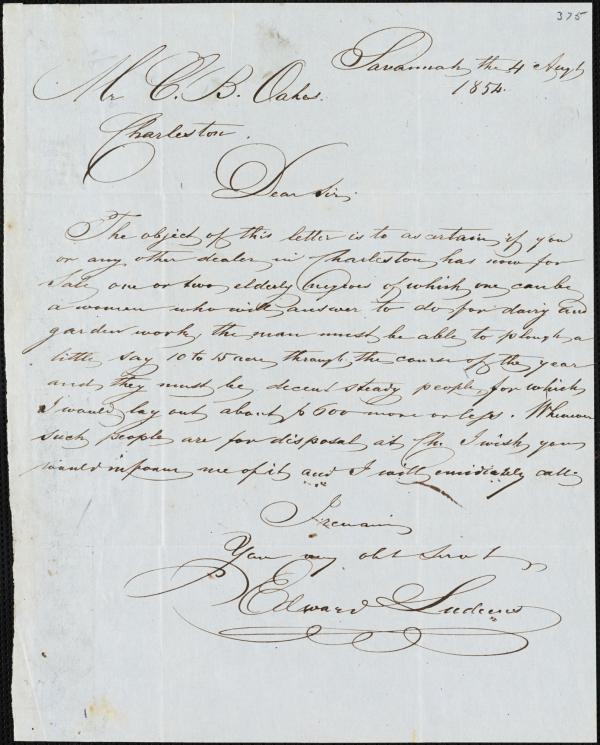 375
Savannah the 4 Augt
1854.
Mr C. B. Oakes.
Charleston.
Dear Sir,
The object of this letter is to ascertain if you
or any other dealer in Charleston has now for
Sale one or two elderly negroes of which one can be
a women who will answer to do for dairy and
garden work, the man must be able to plough a
little say 10 to 15 acre through the course of the year
and they must be decent steady people for which
I would lay out about $600 more or less. Whenever
such people are for disposal at Ch. I wish you
would inform me of it and I will emidiately call
I remain
Your ob't Serv't
Edward